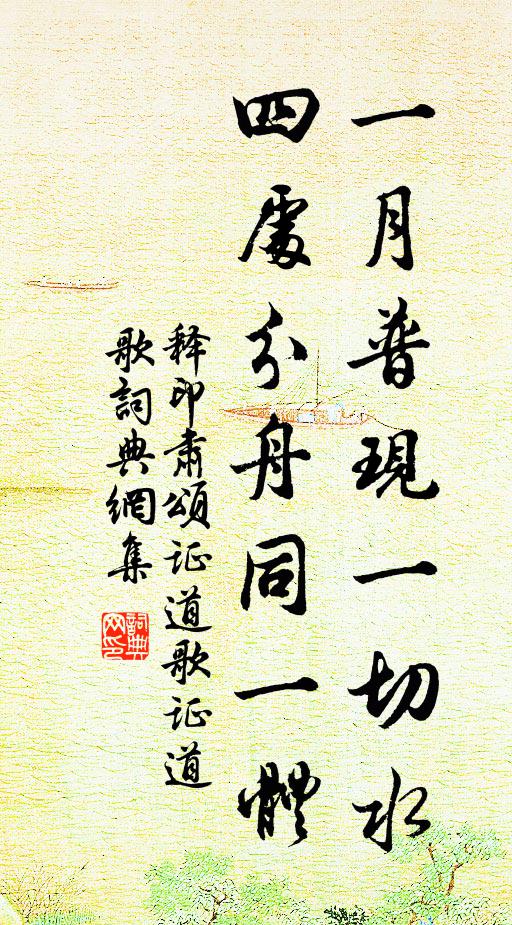 一月普現一切水
四處分舟同一體
释印肃頌证道歌证道
歌詞典網集
詞典
网印